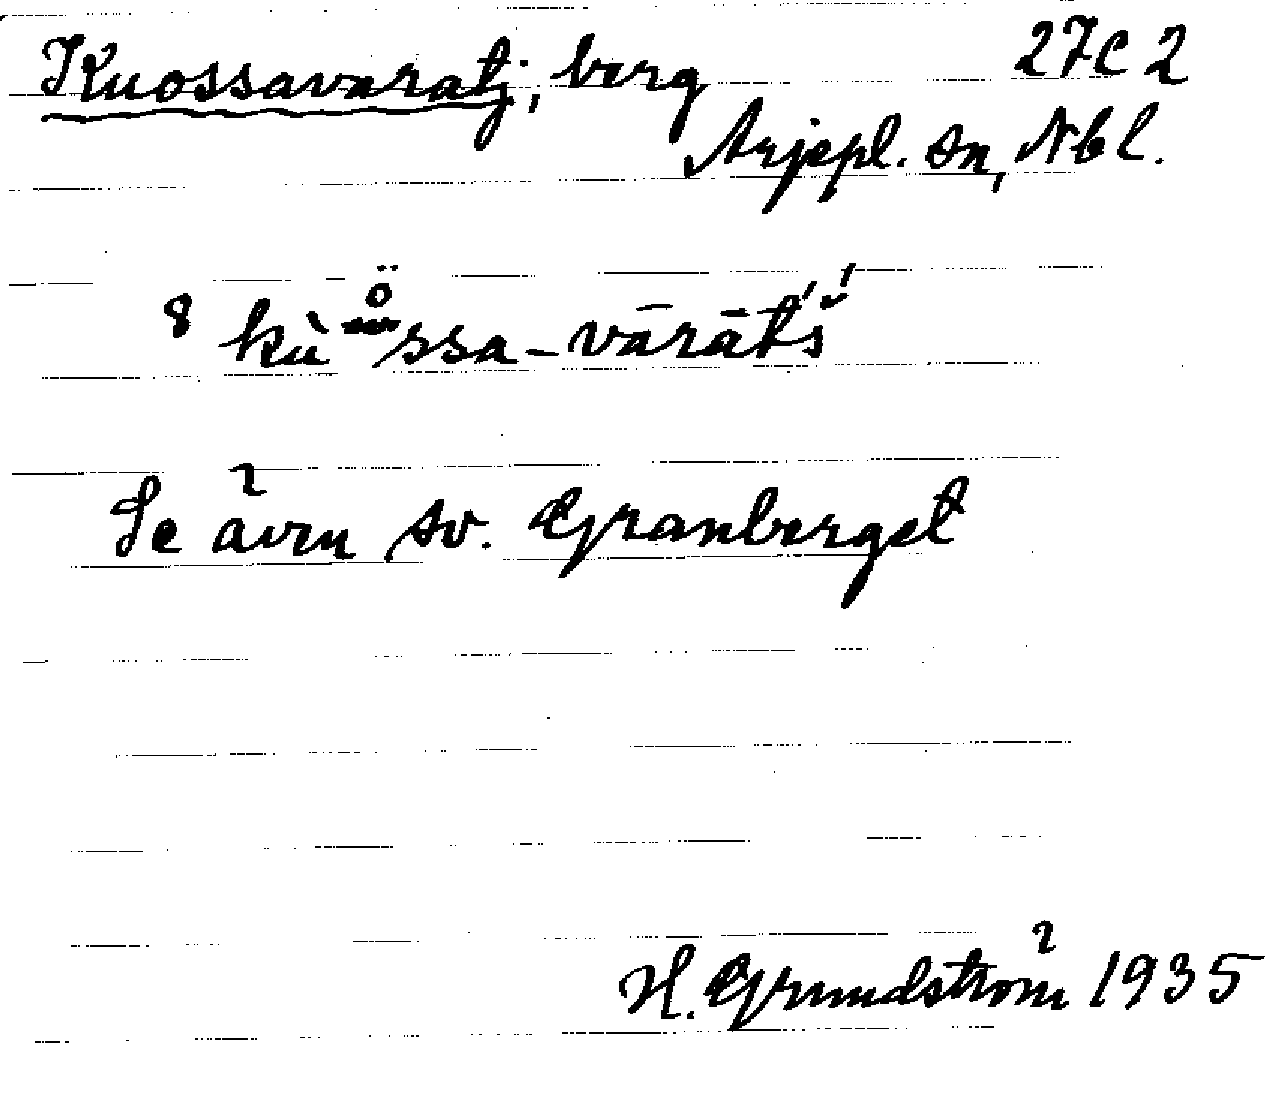 Kuossavaratj, berg 27C 2
Arjepl. sn, Nbl.
8 kùössa-vārātś
Se även sv. Granberget
H. Grundström 1935